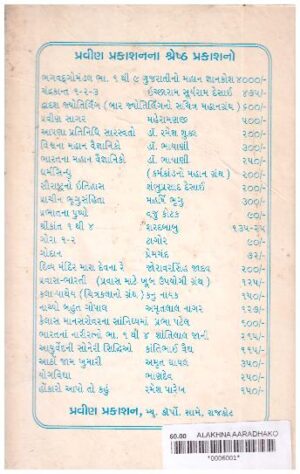 પ્રવીણ પ્રકાશનના શ્રેષ્ઠ પ્રકાશનો
ભગવદ્ગોમંડલ ભા. ૧ થી ૯ ગુજરાતીનો મહાન જ્ઞાનકોશ ૪૦૦૦/-
ચંદ્રકાન્ત ૧-૨-૩ ઈચ્છારામ સૂર્યરામ દેસાઈ ૪૭૫/-
દ્વાદશ જ્યોતિર્લિંગ (બાર જ્યોતિર્લિંગનો સચિત્ર મહાનગ્રંથ) ૬૦૦/-
પ્રવીણ સાગર મહેરામણજી ૫૦૦/-
આપણા પ્રતિનિધિ સારસ્વતો ડૉ. રમેશ શુકલ ૨૦૦/-
વિશ્વના મહાન વૈજ્ઞાનિકો ડૉ. ભાયાણી ૩૦૦/-
ભારતના મહાન વૈજ્ઞાનિકો ડૉ. ભાયાણી ૨૫૦/-
ધર્મસિન્ધુ (કર્મકાંડનો મહાન ગ્રંથ) ૨૦૦/-
સૌરાષ્ટ્રનો ઈતિહાસ શંભુપ્રસાદ દેસાઈ ૨૦૦/-
પ્રાચીન ભૃગુસંહિતા મહર્ષિ ભૃગુ ૩૦૦/-
પ્રભાતના પુષ્પો વજુ કોટક ૭૦/-
શ્રીકાંત ૧ થી ૪ શરદબાબુ ૧૩૫-૨૫
ગોરા ૧-૨ ટાગોર ૭૦/-
ગોદાન પ્રેમચંદ ૭૨/-
દિવ્ય મંદિર મારા દેવના રે જોરાવરસિંહ જાદવ ૨૦૦/-
પ્રવાસ-ભારતી (પ્રવાસ માટે ખૂબ ઉપયોગી ગ્રંથ) ૧૨૫/-
કલાપાથેય (ચિત્રકલાનો ગ્રંથ) કનુ નાયક ૧૫૦/-
નાચ્યો બહુત ગોપાલ અમૃતલાલ નાગર ૧૨૭/-
કૈલાસ માનસરોવરના સાંનિધ્યમાં પ્રભા પટેલ ૧૦૦/-
ભારતનાં નારીરત્નો ભા. ૧ થી ૪ શાંતિલાલ જાની ૨૧૫/-
આયુર્વેદની સોનેરી સિદ્ધિઓ કાંતિભાઈ વૈદ્ય ૧૧૫/-
આઠો જામ ખુમારી અમૃત ઘાયલ ૩૫૦/-
યોગવિદ્યા ભાણદેવ ૨૫૦/-
હોંકારો આપો તો કહું રમેશ પારેખ ૧૫૦/-
પ્રવીણ પ્રકાશન, મ્યુ. કોર્પો. સામે, રાજકોટ
60.00 ALAKHNA AARADHAKO
*0006001*